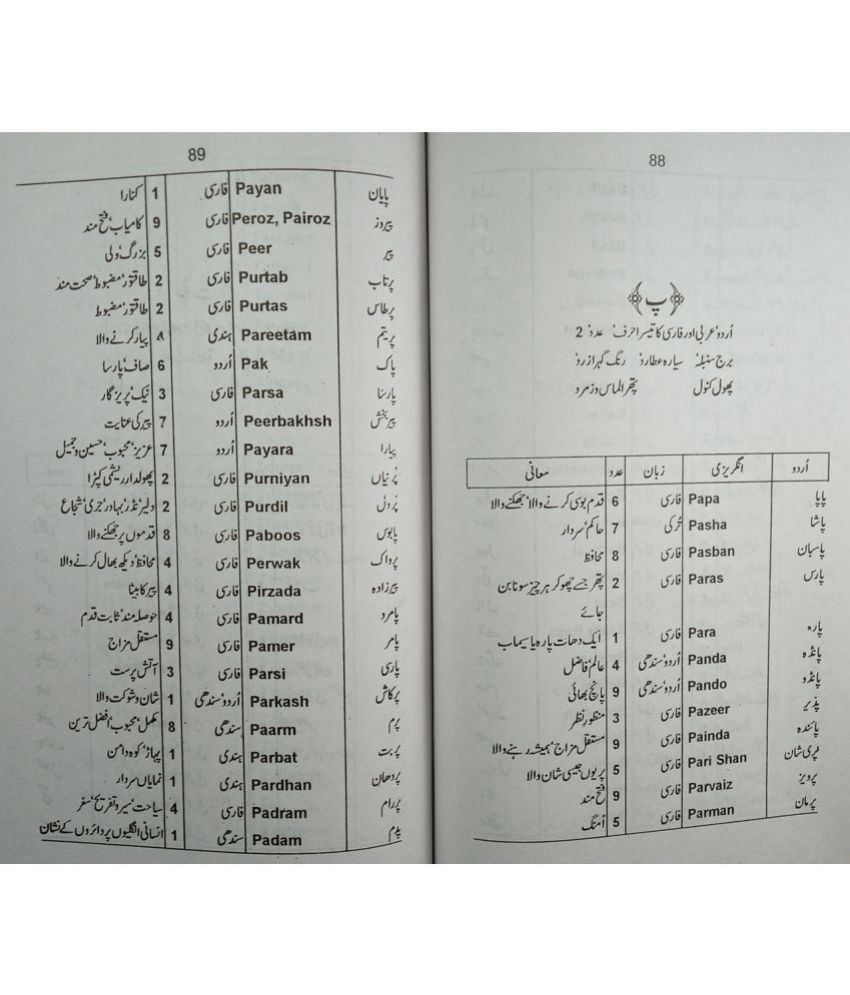 88
﴿پ﴾
اُردو‘ عربی اور فارسی کا تیسرا حرف‘ عدد‘ 2
برج سنبلہ‘ سیارہ عطارد‘ رنگ گہرا زرد‘
پھول کنول پتھر الماس و زمرد
اُردو انگریزی زبان عدد معانی
پاپا Papa فارسی 6 قدم بوسی کرنے والا‘ جھکنے والا
پاشا Pasha تُرکی 7 حاکم‘ سردار
پاسبان Pasban فارسی 8 محافظ
پارس Paras فارسی 2 پتھر جسے چھو کر ہر چیز سونا بن
جائے
پارہ Para فارسی 1 ایک دھات پارہ یا سیماب
پانڈہ Panda اُردو‘ سندھی 4 عالم‘ فاضل
پانڈو Pando اُردو‘ سندھی 9 پانچ بھائی
پذیر Pazeer فارسی 3 منظورِ نظر
پائندہ Painda فارسی 9 مستقل مزاج‘ ہمیشہ رہنے والا
پری شان Pari Shan فارسی 5 پریوں جیسی شان والا
پرویز Parvaiz فارسی 9 فتح مند
پرمان Parman فارسی 5 اُمنگ
89
پایان Payan فارسی 1 کنارا
پیروز Peroz, Pairoz فارسی 9 کامیاب‘ فتح مند
پیر Peer فارسی 5 بزرگ‘ ولی
پرتاب Purtab فارسی 2 طاقتور‘ مضبوط‘ صحت مند
پرطاس Purtas فارسی 2 طاقتور‘ مضبوط
پریتم Pareetam ہندی 4 پیار کرنے والا
پاک Pak اُردو 6 صاف‘ پارسا
پارسا Parsa فارسی 3 نیک‘ پرہیزگار
پیر بخش Peerbakhsh اُردو 7 پیر کی عنایت
پیارا Payara اُردو 7 عزیز‘ محبوب‘ حسین و جمیل
پُرنیاں Purniyan فارسی 2 پھولدار ریشمی کپڑا
پُردل Purdil فارسی 2 دلیر‘ نڈر‘ بہادر‘ جری‘ شجاع
پابوس Paboos فارسی 8 قدموں پر جھکنے والا
پرواک Perwak فارسی 4 محافظ‘ دیکھ بھال کرنے والا
پیرزادہ Pirzada فارسی 4 پیر کا بیٹا
پامرد Pamard فارسی 4 حوصلہ مند‘ ثابت قدم
پامر Pamer فارسی 9 مستقل مزاج
پارسی Parsi فارسی 3 آتش پرست
پرکاش Parkash اُردو‘ سندھی 1 شان و شوکت والا
پرم Paarm سندھی 8 مکمل‘ محبوب‘ افضل ترین
پربت Parbat ہندی 1 پہاڑ‘ کوہ دامن
پردھان Pardhan ہندی 1 نمایاں سردار
پدرام Padram فارسی 4 سیاحت‘ سیر و تفریح‘ سفر
پدم Padam سندھی 1 انسانی انگلیوں پر دائروں کے نشان